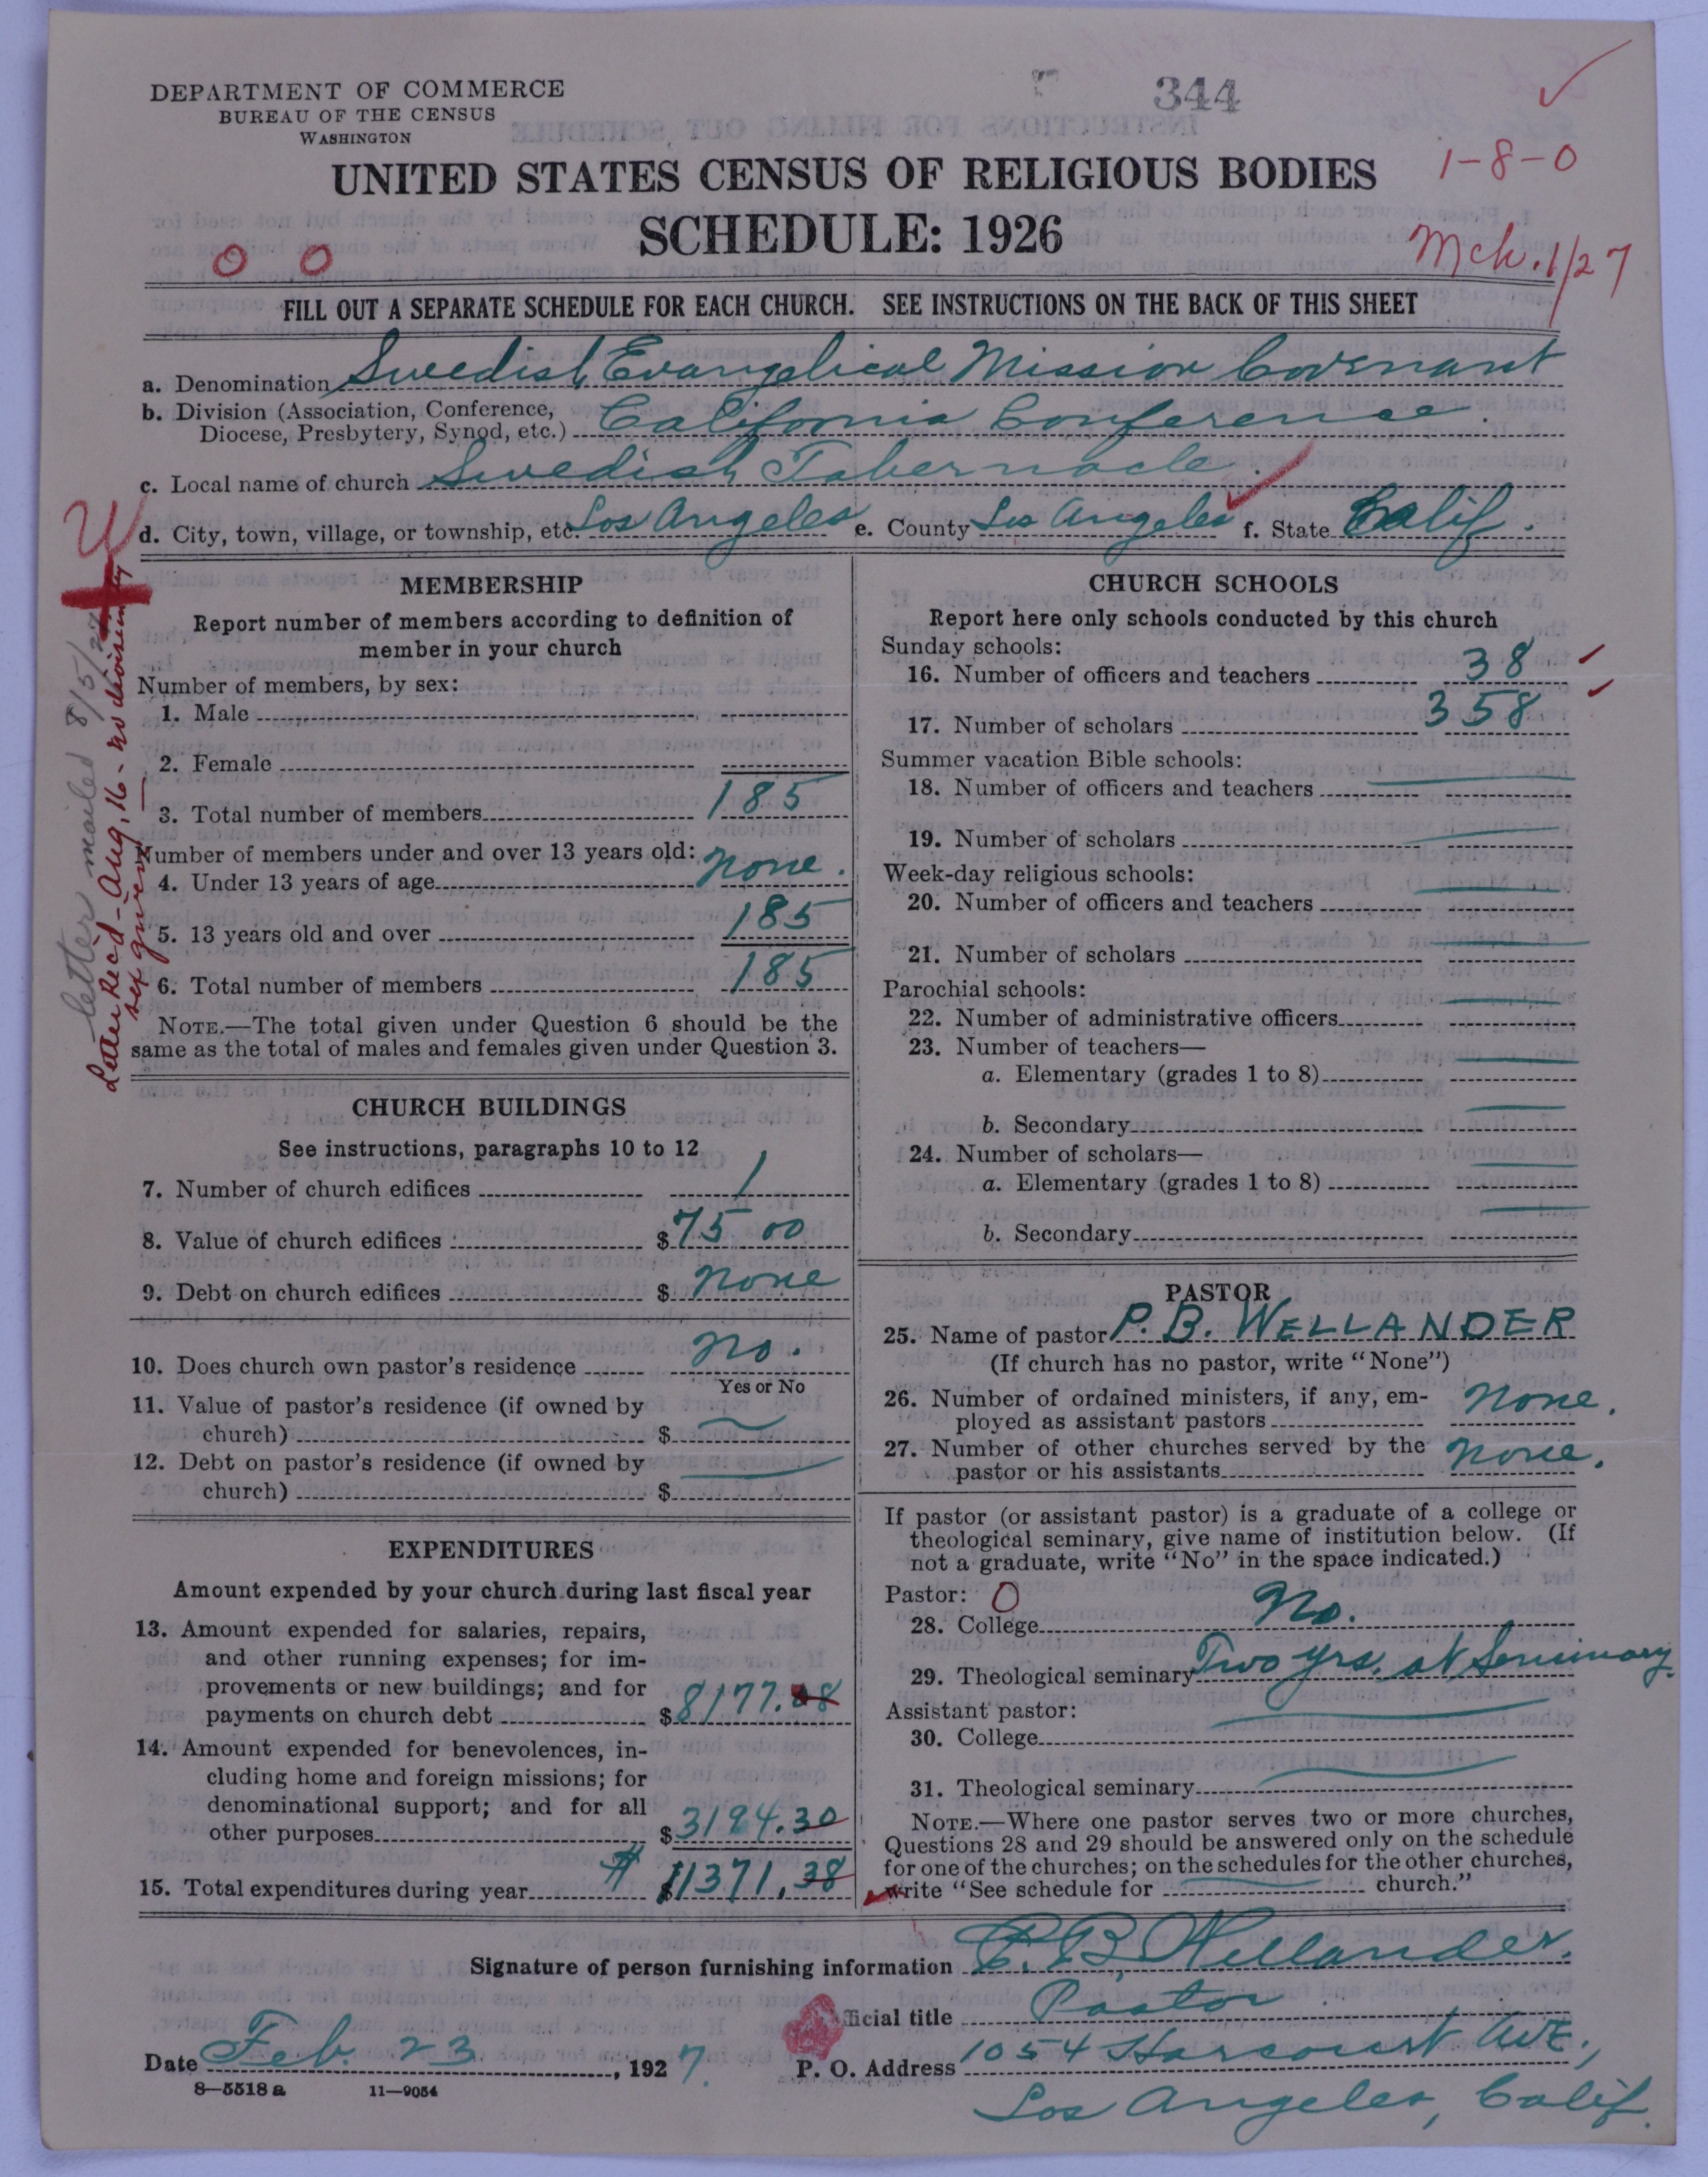 DEPARTMENT OF COMMERCE
BUREAU OF THE CENSUS
WASHINGTON
344
1-8-0
UNITED STATES CENSUS OF RELIGIOUS BODIES
SCHEDULE: 1926
Mch. 1/27
0 0
FILL OUT A SEPARATE SCHEDULE FOR EACH CHURCH. SEE INSTRUCTIONS ON THE BACK OF THIS SHEET
a. Denomination Swedish Evangelical Mission Covenant
b. Division (Association, Conference, Diocese, Presbytery, Synod, etc.) California Conference
c. Local name of church Swedish Tabernacle
d. City, town, village, or township, etc. Los Angeles e. County Los Angeles f. State Calif.
letter mailed 8/5/27
Letter Rec'd - Aug. 16 - no division by
sex given
MEMBERSHIP
Report number of members according to definition of
member in your church
Number of members, by sex:
1. Male
2. Female
3. Total number of members 185
Number of members under and over 13 years old:
4. Under 13 years of age none.
5. 13 years old and over 185
6. Total number of members 185
NOTE.—The total given under Question 6 should be the
same as the total of males and females given under Question 3.
CHURCH BUILDINGS
See instructions, paragraphs 10 to 12
7. Number of church edifices 1
8. Value of church edifices $75 00
9. Debt on church edifices $ none
10. Does church own pastor's residence no.
Yes or No
11. Value of pastor's residence (if owned by
church) $
12. Debt on pastor's residence (if owned by
church) $
EXPENDITURES
Amount expended by your church during last fiscal year
13. Amount expended for salaries, repairs,
and other running expenses; for im-
provements or new buildings; and for
payments on church debt $8177.08
14. Amount expended for benevolences, in-
cluding home and foreign missions; for
denominational support; and for all
other purposes $3194.30
15. Total expenditures during year $ 11371.38
CHURCH SCHOOLS
Report here only schools conducted by this church
Sunday schools:
16. Number of officers and teachers 38
17. Number of scholars 358
Summer vacation Bible schools:
18. Number of officers and teachers
19. Number of scholars
Week-day religious schools:
20. Number of officers and teachers
21. Number of scholars
Parochial schools:
22. Number of administrative officers
23. Number of teachers—
a. Elementary (grades 1 to 8)
b. Secondary
24. Number of scholars—
a. Elementary (grades 1 to 8)
b. Secondary
PASTOR
25. Name of pastor P. B. WELLANDER
(If church has no pastor, write "None")
26. Number of ordained ministers, if any, em-
ployed as assistant pastors None.
27. Number of other churches served by the
pastor or his assistants None.
If pastor (or assistant pastor) is a graduate of a college or
theological seminary, give name of institution below. (If
not a graduate, write "No" in the space indicated.)
Pastor: 0
28. College No.
29. Theological seminary Two yrs. at Seminary.
Assistant pastor:
30. College
31. Theological seminary
NOTE.—Where one pastor serves two or more churches,
Questions 28 and 29 should be answered only on the schedule
for one of the churches; on the schedules for the other churches,
write "See schedule for church."
Signature of person furnishing information P. B. Wellander.
Official title Pastor
Date Feb. 23, 1927. P. O. Address 1054 Harcourt AVE.,
Los Angeles, Calif.
8—5518 a 11—9054